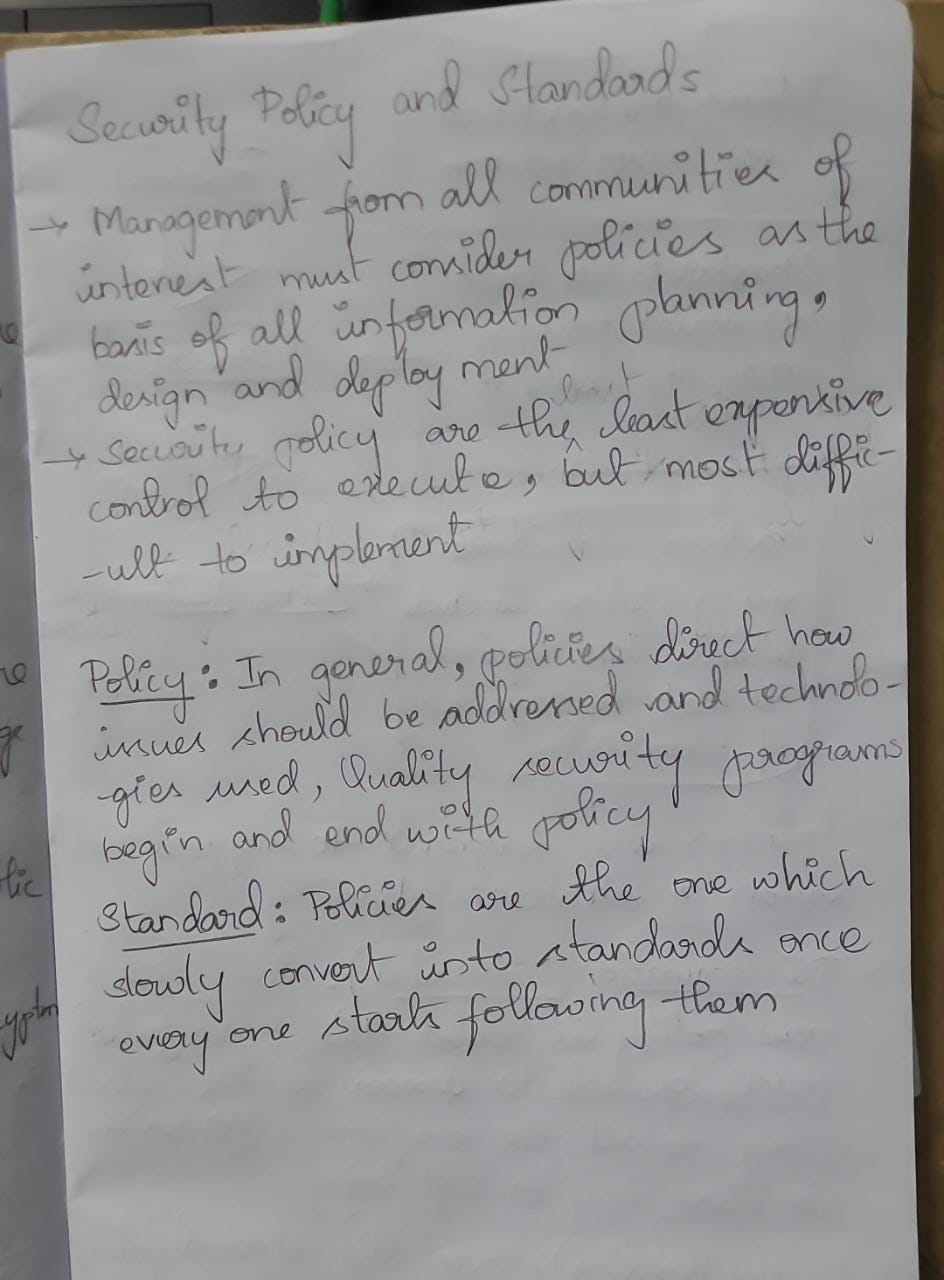 Security Policy and Standards
→ Management from all communities of
interest must consider policies as the
basis of all information planning,
design and deployment
→ Security policy are the least expensive
control to execute, but most diffic-
-ult to implement
Policy: In general, policies direct how
issues should be addressed and technolo-
-gies used, Quality security programs
begin and end with policy
Standard: Policies are the one which
slowly convert into standards once
every one starts following them